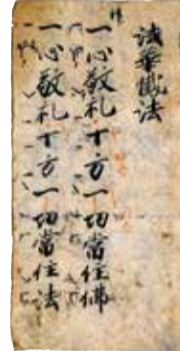 法華懺法
一心敬礼十方一切常住佛
一心敬礼十方一切常住法